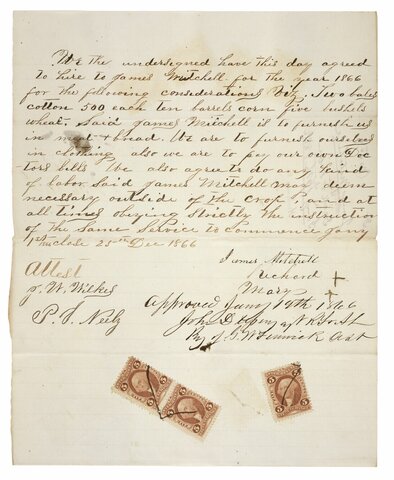 We the undersigned have this day agreed
to hire to James Mitchell for the year 1866
for the following considerations Viz. Two bales
cotton 500 each ten barrels corn five bushels
wheat, Said James Mitchell is to furnish us
in meat & bread. We are to furnish ourselves
in clothing also we are to pay our own Doc
tors bills We also agree to do any kind
of labor said James Mitchell may deem
necessary outside of the crop and at
all times obeying Strictly the instruction
of the Same Service to commence Jany
1st & close 25th Dec 1866
James Mitchell
Attest
Richard +
J. W. Wilkes
Mary +
Approved Jany 19th 1866
P. T. Neely
John
By
5 5
5 5
5 5